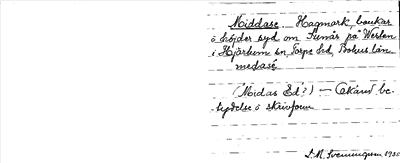 Middase. Hagmark, backar
o höjder syd om Sunnås på Westen
i Hjärtum sn, Torpe hd, Bohus län
medasé
(Midas Ed?) — Okänd be-
tydelse o skrivform
S. M. Svenningsson 1930